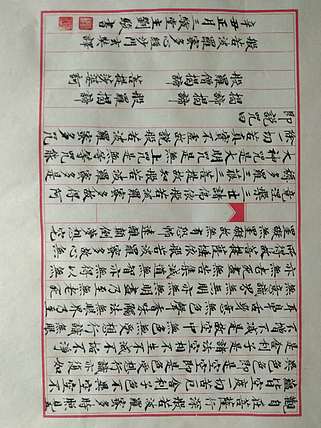 觀自在菩薩行深般若波羅蜜多時照見
五蘊皆空度一切苦厄舍利子色不異空空不
異色色即是空空即是色受想行識亦復如
是舍利子是諸法空相不生不滅不垢不淨
不增不減是故空中無色無受想行識無眼
耳鼻舌身意無色聲香味觸法無眼界乃至
無意識界無無明亦無無明盡乃至無老死
亦無老死盡無苦集滅道無智亦無得以無
所得故菩提薩埵依般若波羅蜜多故心無
罣礙無罣礙故無有恐怖遠離顛倒夢想究
竟涅槃三世諸佛依般若波羅蜜多故得阿
耨多羅三藐三菩提故知般若波羅蜜多是
大神咒是大明咒是無上咒是無等等咒能
除一切苦真實不虛故說般若波羅蜜多咒
即說咒曰
揭諦揭諦 般羅揭諦
般羅僧揭諦 菩提薩婆訶
般若波羅蜜多心經 沙門玄奘譯
辛丑正月三 堂主劉 書